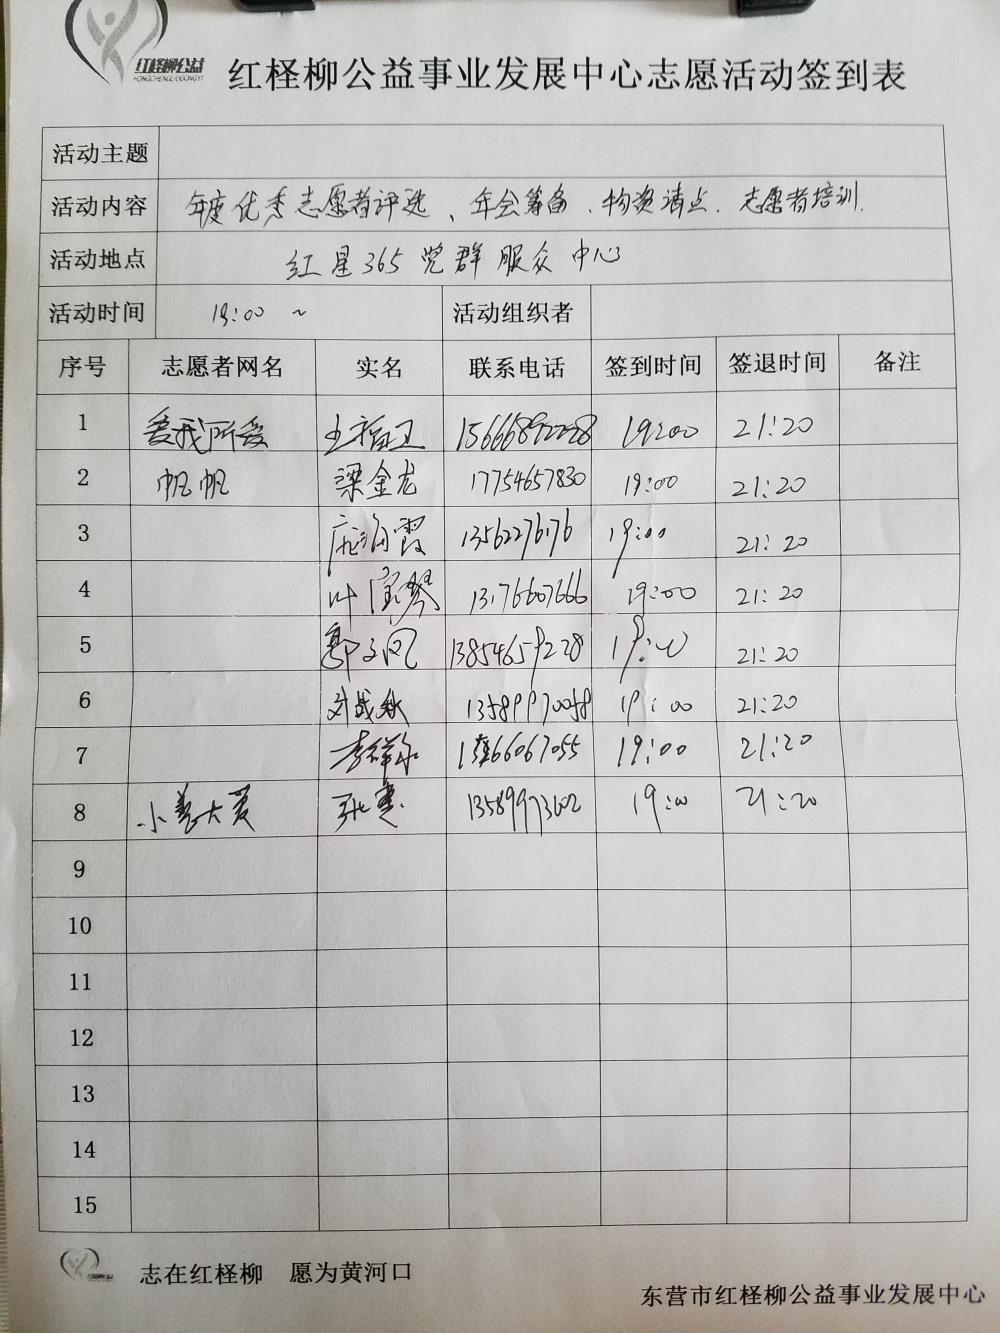 红柽柳公益
HONGCHENGLIUGONGYI
红柽柳公益事业发展中心志愿活动签到表
活动主题
活动内容 年度优秀志愿者评选、年会筹备、物资清点、志愿者培训.
活动地点 红星365党群服众中心
活动时间 19:00 ~ 活动组织者
序号 志愿者网名 实名 联系电话 签到时间 签退时间 备注
1 爱我所爱 19:00 21:20
2 帆帆 梁金龙 17754657830 19:00 21:20
3 庞海霞 19:00 21:20
4 叶宝琴 13176607666 19:00 21:20
5 13854659228 19:00 21:20
6 刘战秋 13589970058 19:00 21:20
7 19:00 21:20
8 小善大爱 13589973602 19:00 21:20
9
10
11
12
13
14
15
志在红柽柳 愿为黄河口
东营市红柽柳公益事业发展中心